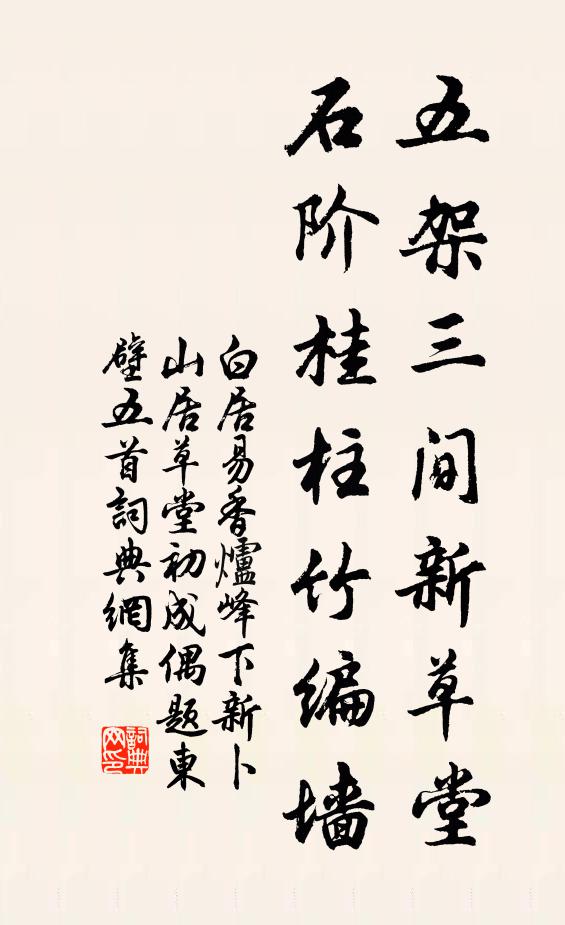 五架三间新草堂
石阶桂柱竹编墙
白居易香爐峰下新卜
山居草堂初成偶题東
壁五首詞典網集
詞典
网印